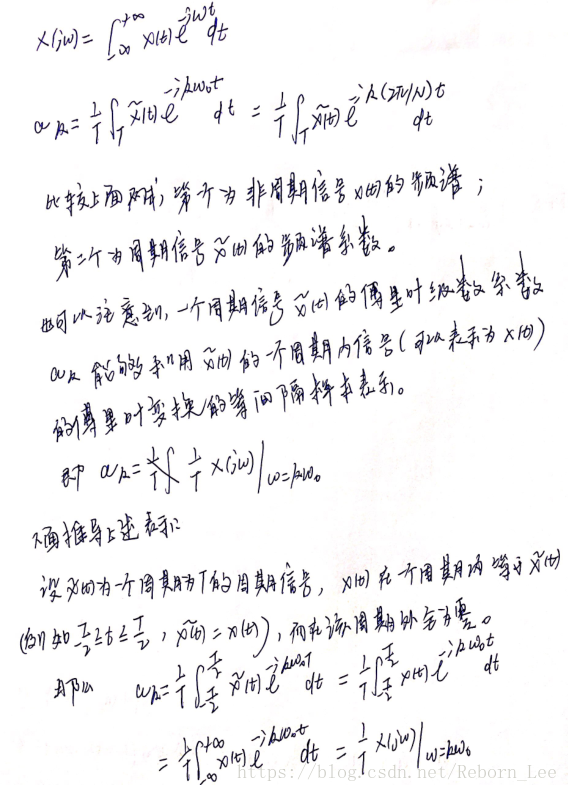 X(jω) = ∫_{-∞}^{+∞} x(t) e^{-jωt} dt
a_k = 1/T ∫_T x̃(t) e^{-jkω₀t} dt = 1/T ∫_T x̃(t) e^{-jk(2π/N)t} dt
比较上面两式,第一个为非周期信号x(t)的频谱;
第二个为周期信号x̃(t)的频谱系数。
也可以注意到,一个周期信号x̃(t)的傅里叶级数系数
a_k 能够利用x̃(t)的一个周期内信号(可以表示为x(t))
的傅里叶变换的等间隔样本表示。
即 a_k = 1/T X(jω)|_{ω=kω₀}
下面推导上述表示:
设x̃(t)为一个周期为T的周期信号,x(t)在一个周期内等于x̃(t)
(例如 T/2 ≥ t ≤ T/2, x̃(t) = x(t)),而在该周期外全为零。
那么 a_k = 1/T ∫_{-T/2}^{T/2} x̃(t) e^{-jkω₀t} dt = 1/T ∫_{-T/2}^{T/2} x(t) e^{-jkω₀t} dt
= 1/T ∫_{-∞}^{+∞} x(t) e^{-jkω₀t} dt = 1/T X(jω)|_{ω=kω₀}
https://blog.csdn.net/Reborn_Lee